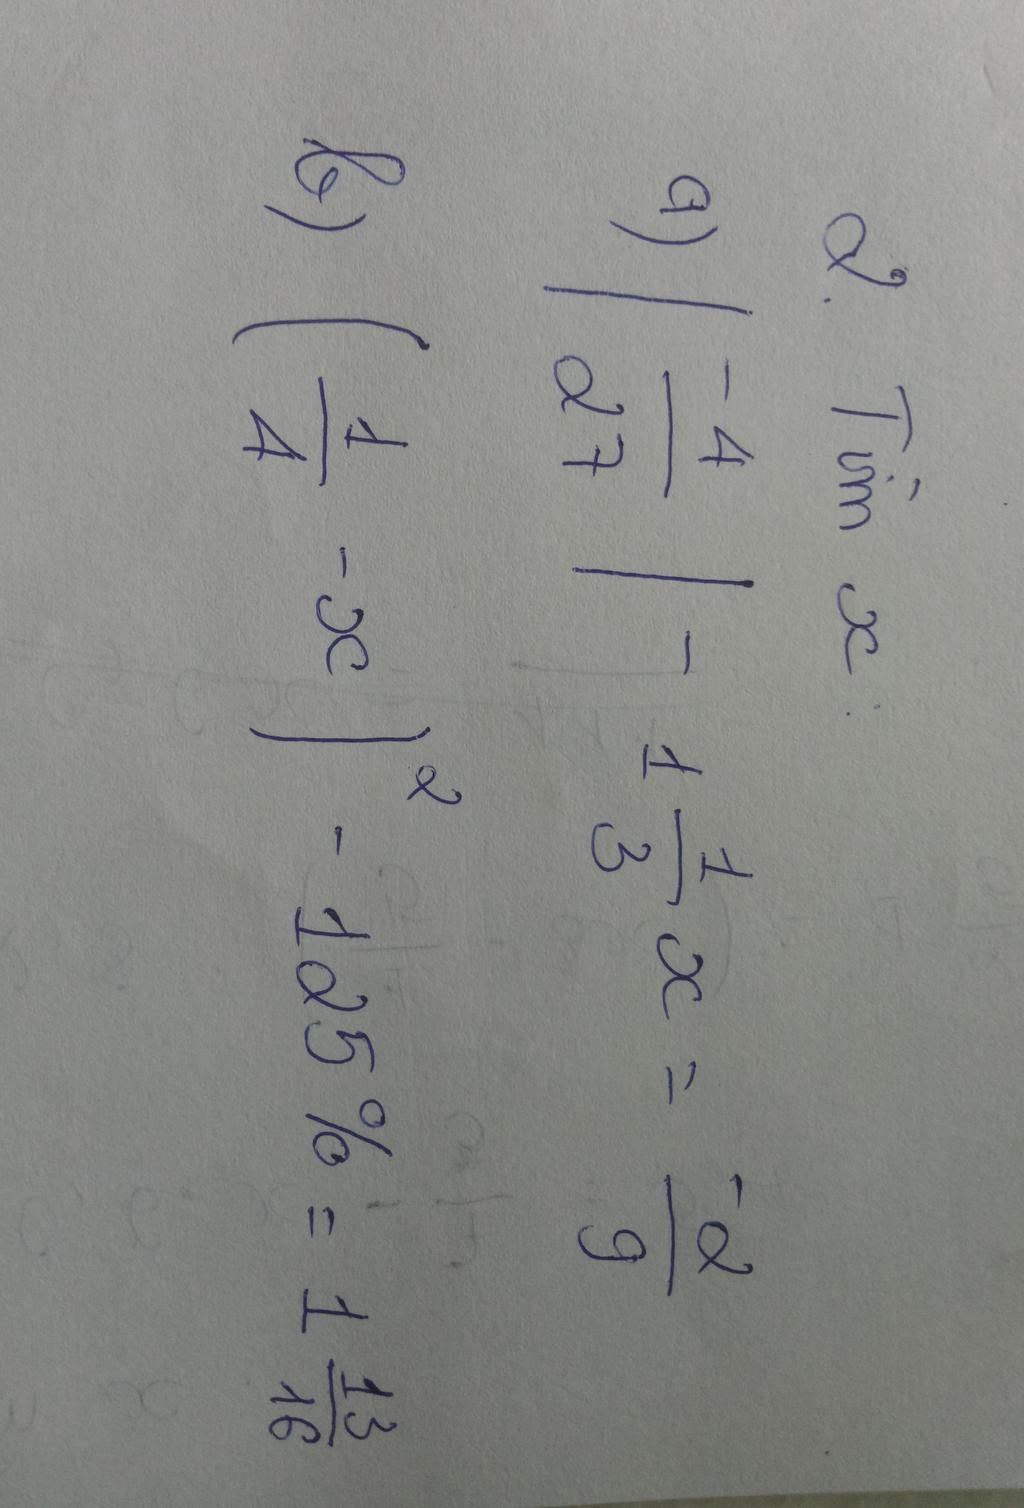 2. Tìm x:
a) |-4/27| - 1 1/3 x = -2/9
b) (1/4 - x)² - 125% = 1 13/16